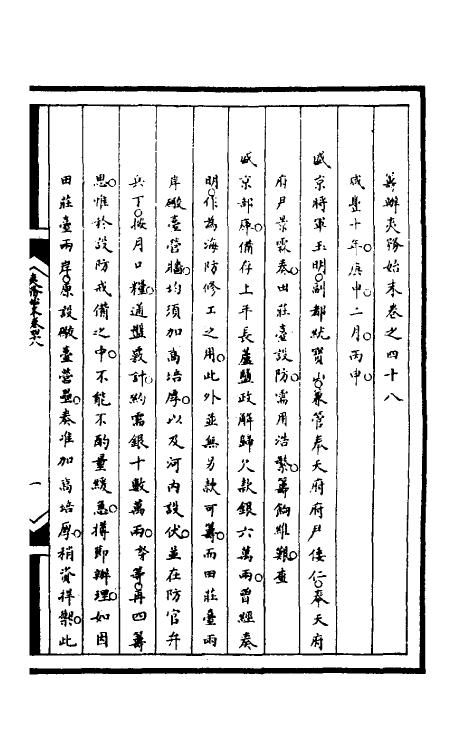 籌辦夷務始末卷之四十八
咸豐十年。庚申二月。丙申。
盛京將軍玉明。副都統寶山。兼管奉天府府尹倭仁。奉天府
府尹景霖。奏。田莊臺設防。需用浩繁。籌餉維艱。查
盛京部庫。備存上年長蘆鹽政解歸欠款銀六萬兩。曾經奏
明。作為海防修工之用。此外並無另款可籌。而田莊臺兩
岸礮臺營牆。均須加高培厚。以及河內設伏。並在防官弁
兵丁。按月口糧。通盤覈計。約需銀十數萬兩。奴等。再四籌
思。惟於設防戒備之中。不能不酌量緩急。擇即辦理。如因
田莊臺兩岸。原設礮臺營壘。奏准加高培厚。稍資捍禦。此
夷務始末卷四八
一